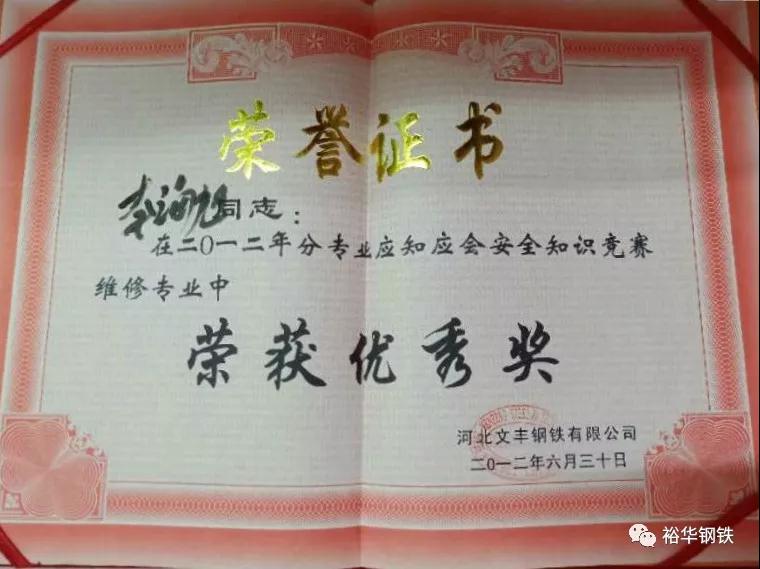 荣誉证书
同志：
在二〇一二年分专业应知应会安全知识竞赛
维修专业中
荣获优秀奖
河北文丰钢铁有限公司
二〇一二年六月三十日
裕华钢铁